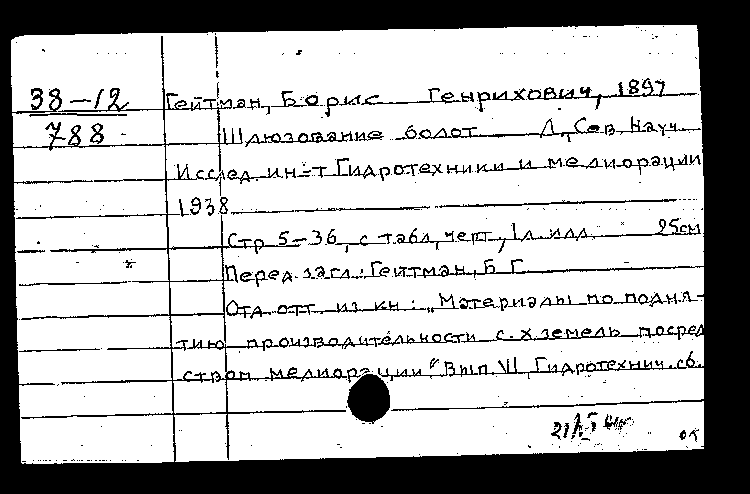 38-12
788
Гейтман, Борис Генрихович, 1897
Шлюзование болот Л., Сев. Науч.
Исслед. ин-т Гидротехники и мелиорации
1938
Стр 5-36, с табл, черт, 1 л. илл. 25см
Перед загл.: Гейтман, Б Г.
Отд отт. из кн: "Материалы по подня-
тию производительности с.х. земель посред
ством мелиорации" Вып. VI, Гидротехнич. сб.